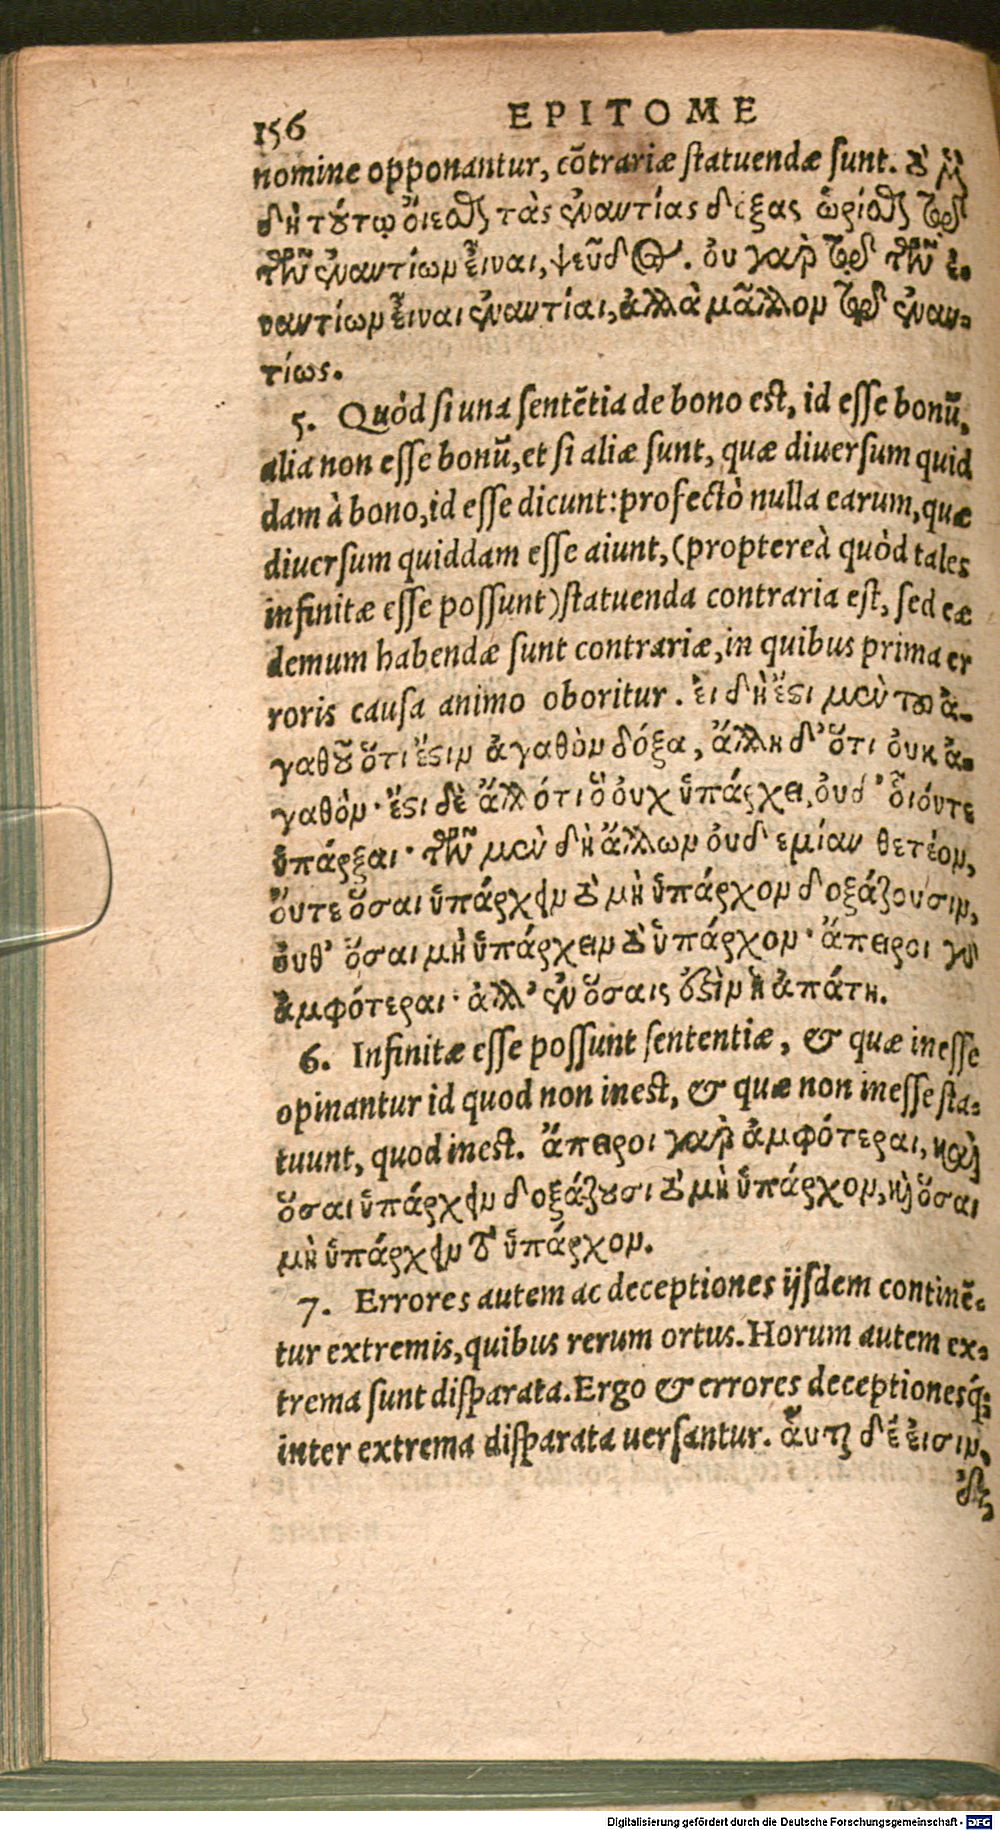 156 EPITOME
nomine opponantur, cōtrariæ statuendæ sunt. τὸ μὲν
δὴ τούτῳ ὄιεσθαι τὰς ἐναντίας δόξας ὡρίσθαι τῷ
τῶν ἐναντίων εἶναι, ψεῦδος. ὀυ γὰρ τῷ τῶν ἐ-
ναντίων εἶναι ἐναντίαι, ἀλλὰ μᾶλλον τῷ ἐναν-
τίως.
5. Quòd si una sentētia de bono est, id esse bonū,
alia non esse bonū, et si aliæ sunt, quæ diuersum quid
dam à bono, id esse dicunt: profectò nulla earum, quæ
diuersum quiddam esse aiunt, (proptereà quòd tales
infinitæ esse possunt) statuenda contraria est, sed eæ
demum habendæ sunt contrariæ, in quibus prima er
roris causa animo oboritur. ἐι δὴ ἔστι μὲν τοῦ ἀ-
γαθοῦ ὅτι ἔστιν ἀγαθὸν δόξα, ἄλλη δ' ὅτι ὀυκ ἀ-
γαθὸν· ἔστι δὲ ἄλλο ὅτι ὃ ὀυχ ὑπάρχει, ὀυδ' ὅιόντε
ὑπάρξαι· τῶν μὲν δὴ ἄλλων ὀυδεμίαν θετέον,
ὄυτε ὅσαι ὑπάρχειν τὸ μὴ ὑπάρχον δοξάζουσιν,
ὄυθ' ὅσαι μὴ ὑπάρχειν τὸ ὑπάρχον· ἄπειροι γὰρ
ἀμφότεραι· ἀλλ' ἐν ὅσαις ἐστὶν ἡ ἀπάτη.
6. Infinitæ esse possunt sententiæ, & quæ inesse
opinantur id quod non inest, & quæ non inesse sta-
tuunt, quod inest. ἄπειροι γὰρ ἀμφότεραι, καὶ
ὅσαι ὑπάρχειν δοξάζουσι τὸ μὴ ὑπάρχον, καὶ ὅσαι
μὴ ὑπάρχειν τὸ ὑπάρχον.
7. Errores autem ac deceptiones ijsdem continē-
tur extremis, quibus rerum ortus. Horum autem ex-
trema sunt disparata. Ergo & errores deceptionesq́;
inter extrema disparata uersantur. ἅυται δέ ἐισιν,
Digitalisierung gefördert durch die Deutsche Forschungsgemeinschaft - DFG